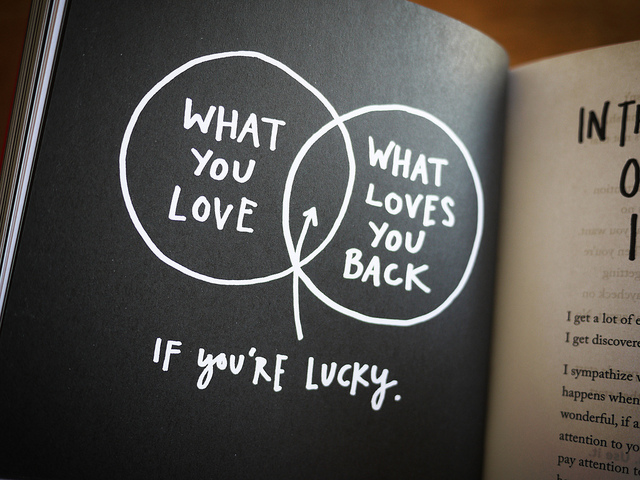 WHAT
YOU
LOVE
WHAT
LOVES
YOU
BACK
IF YOU'RE LUCKY.
IN
O
I get a lot of
I get discover
I sympathize
happens when
wonderful, if a
attention to yo
pay attention t